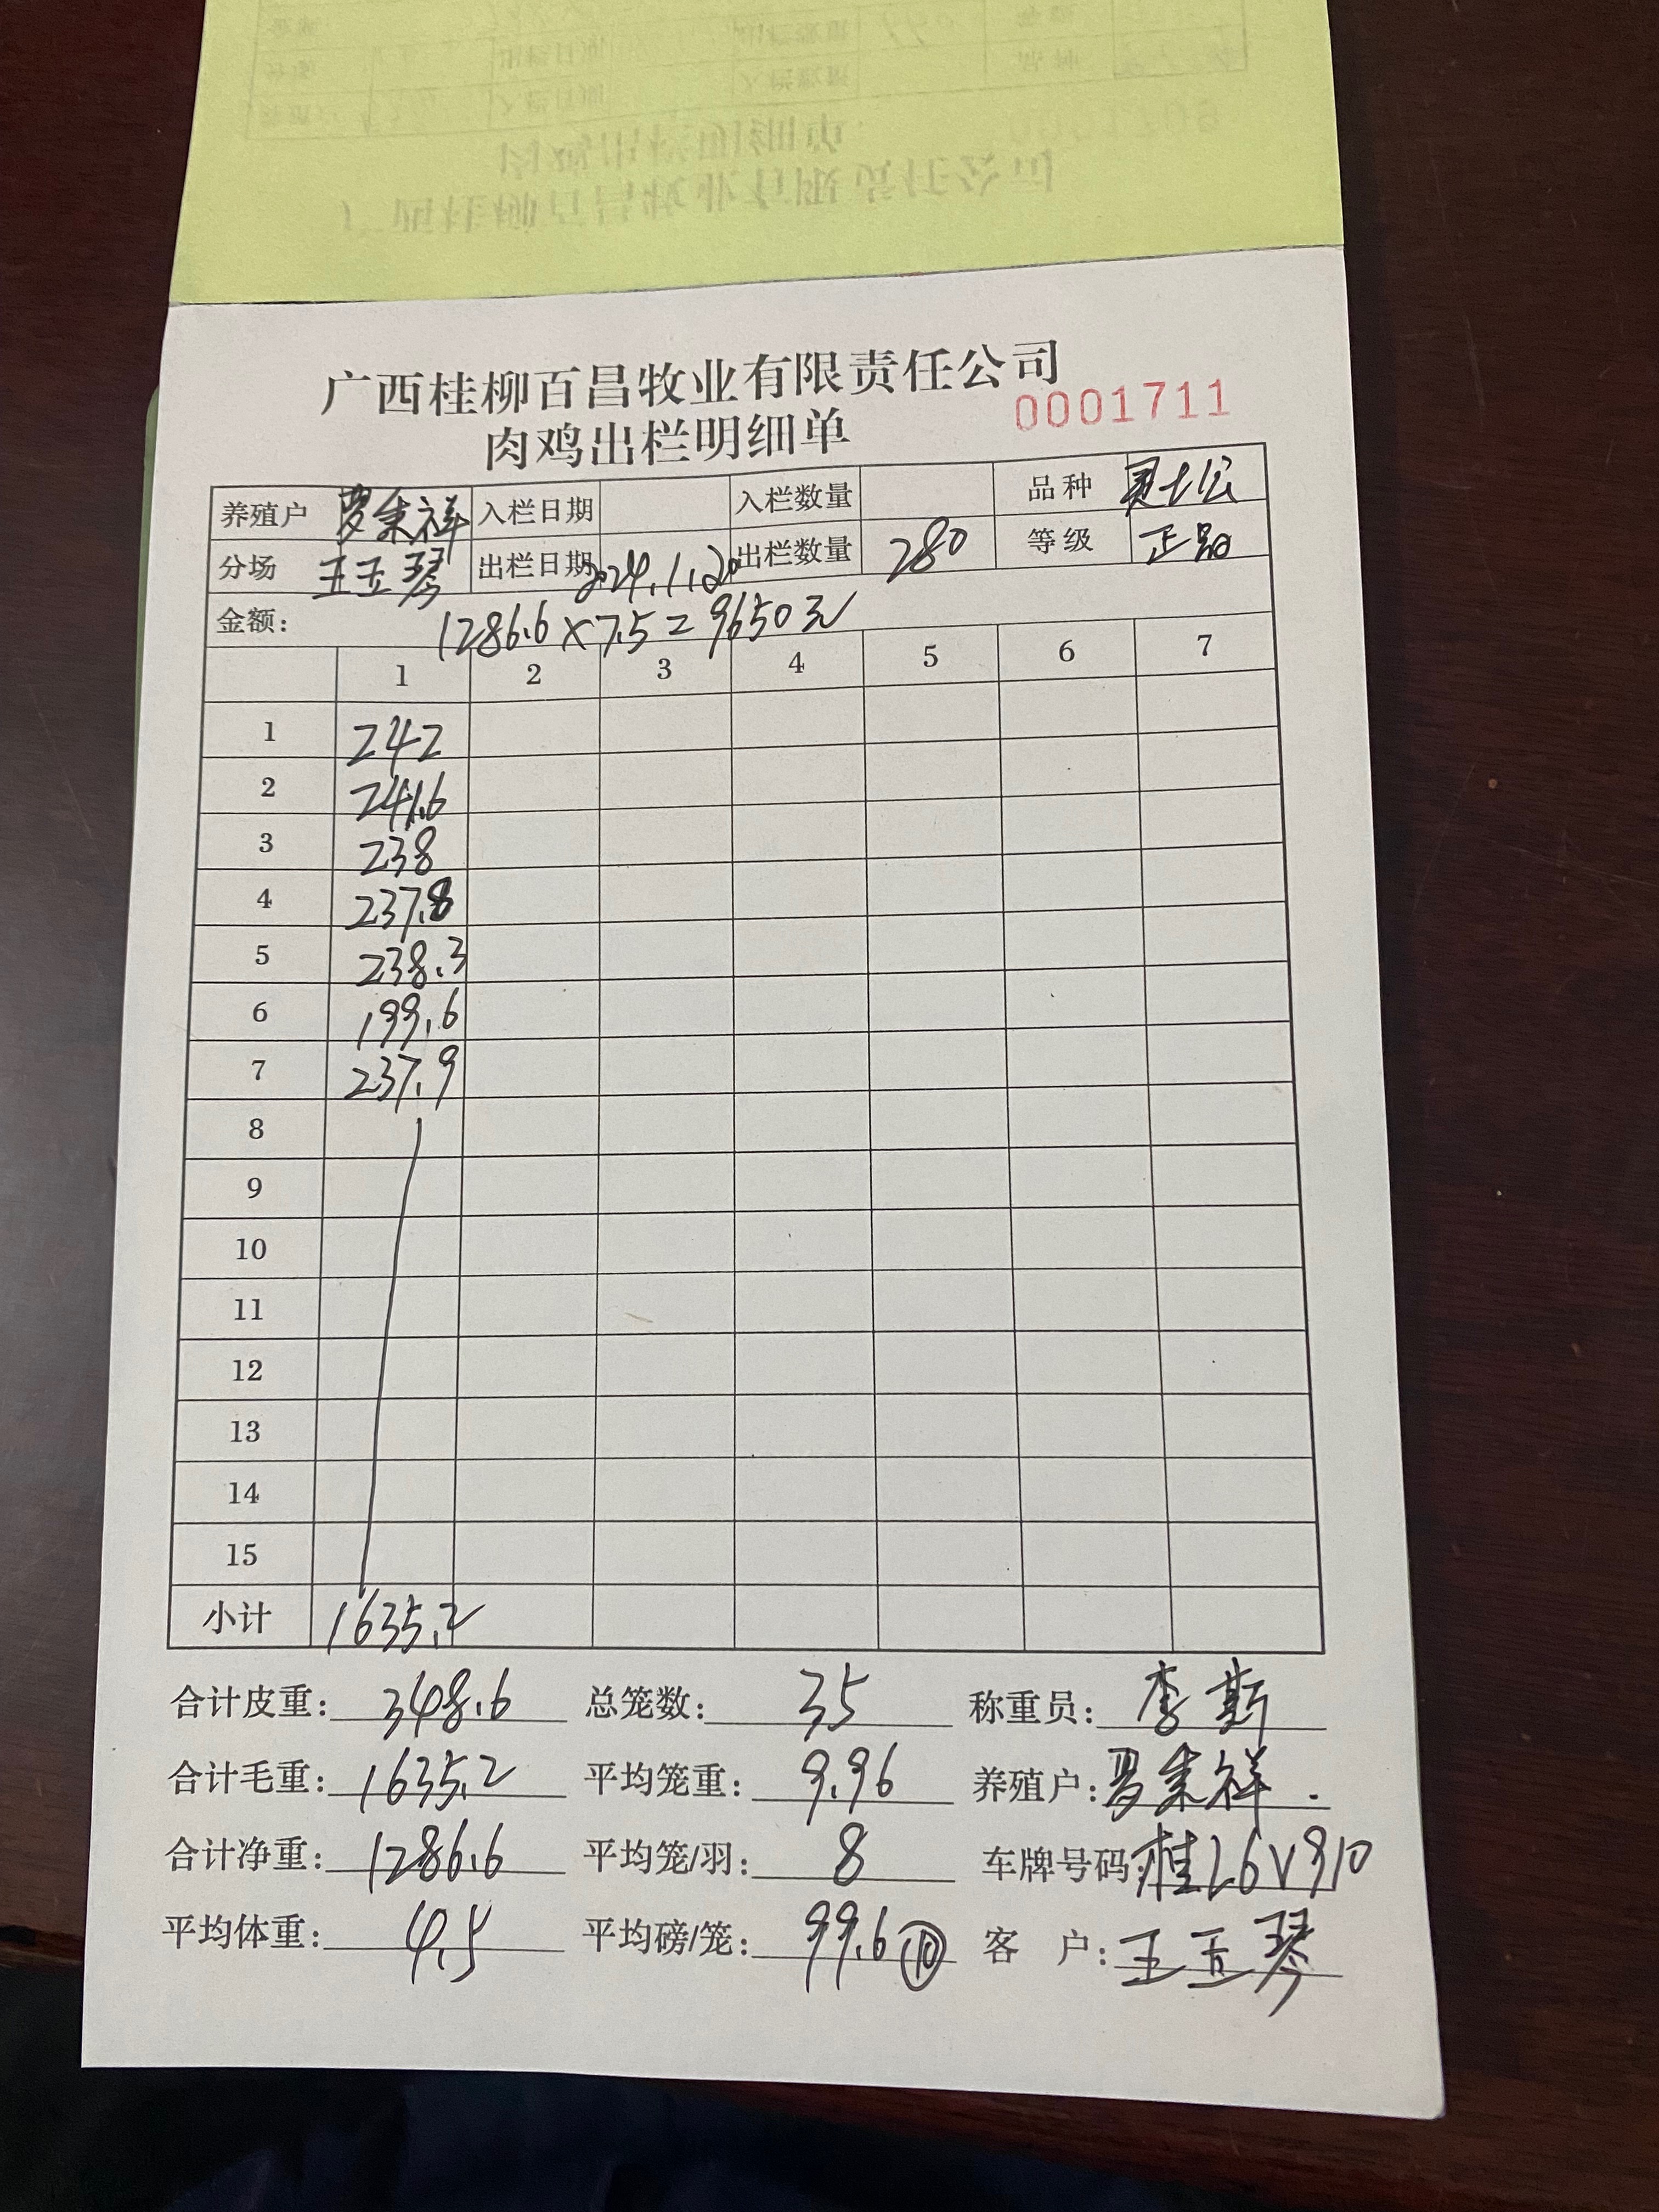 广西桂柳百昌牧业有限责任公司
肉鸡出栏明细单 0001711
养殖户 罗集祥 入栏日期 入栏数量 品种
分场 王玉琴 出栏日期 2024.1.20 出栏数量 280 等级 正品
金额: 1286.6×7.5=9650元
1 2 3 4 5 6 7
1 242
2 241.6
3 238
4 237.8
5 238.3
6 199.6
7 237.9
8
9
10
11
12
13
14
15
小计 1635.2
合计皮重: 348.6 总笼数: 35 称重员: 李斯
合计毛重: 1635.2 平均笼重: 9.96 养殖户: 罗集祥.
合计净重: 1286.6 平均笼/羽: 8 车牌号码: 桂L6V910
平均体重: 4.5 平均磅/笼: 99.6 ⑩ 客户: 王玉琴